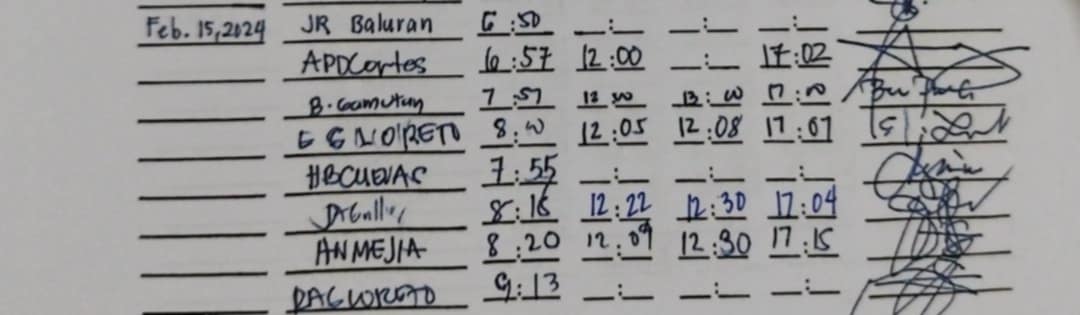 Feb. 15, 2024 JR Baluran 6:50 __:__ __:__ __:__
APDCortes 6:57 12:00 __:__ 17:02
B. Gamutan 7:57 12:00 13:00 17:00
8:00 12:05 12:08 17:07
HBCUEVAS 7:55 __:__ __:__ __:__
8:16 12:22 12:30 17:04
ANMEJIA 8:20 12:09 12:30 17:15
9:13 __:__ __:__ __:__